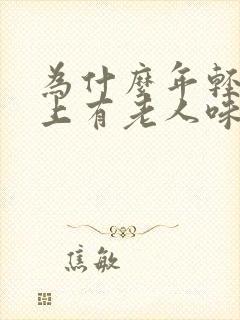 為什麼年輕
上有老人味
焦敏